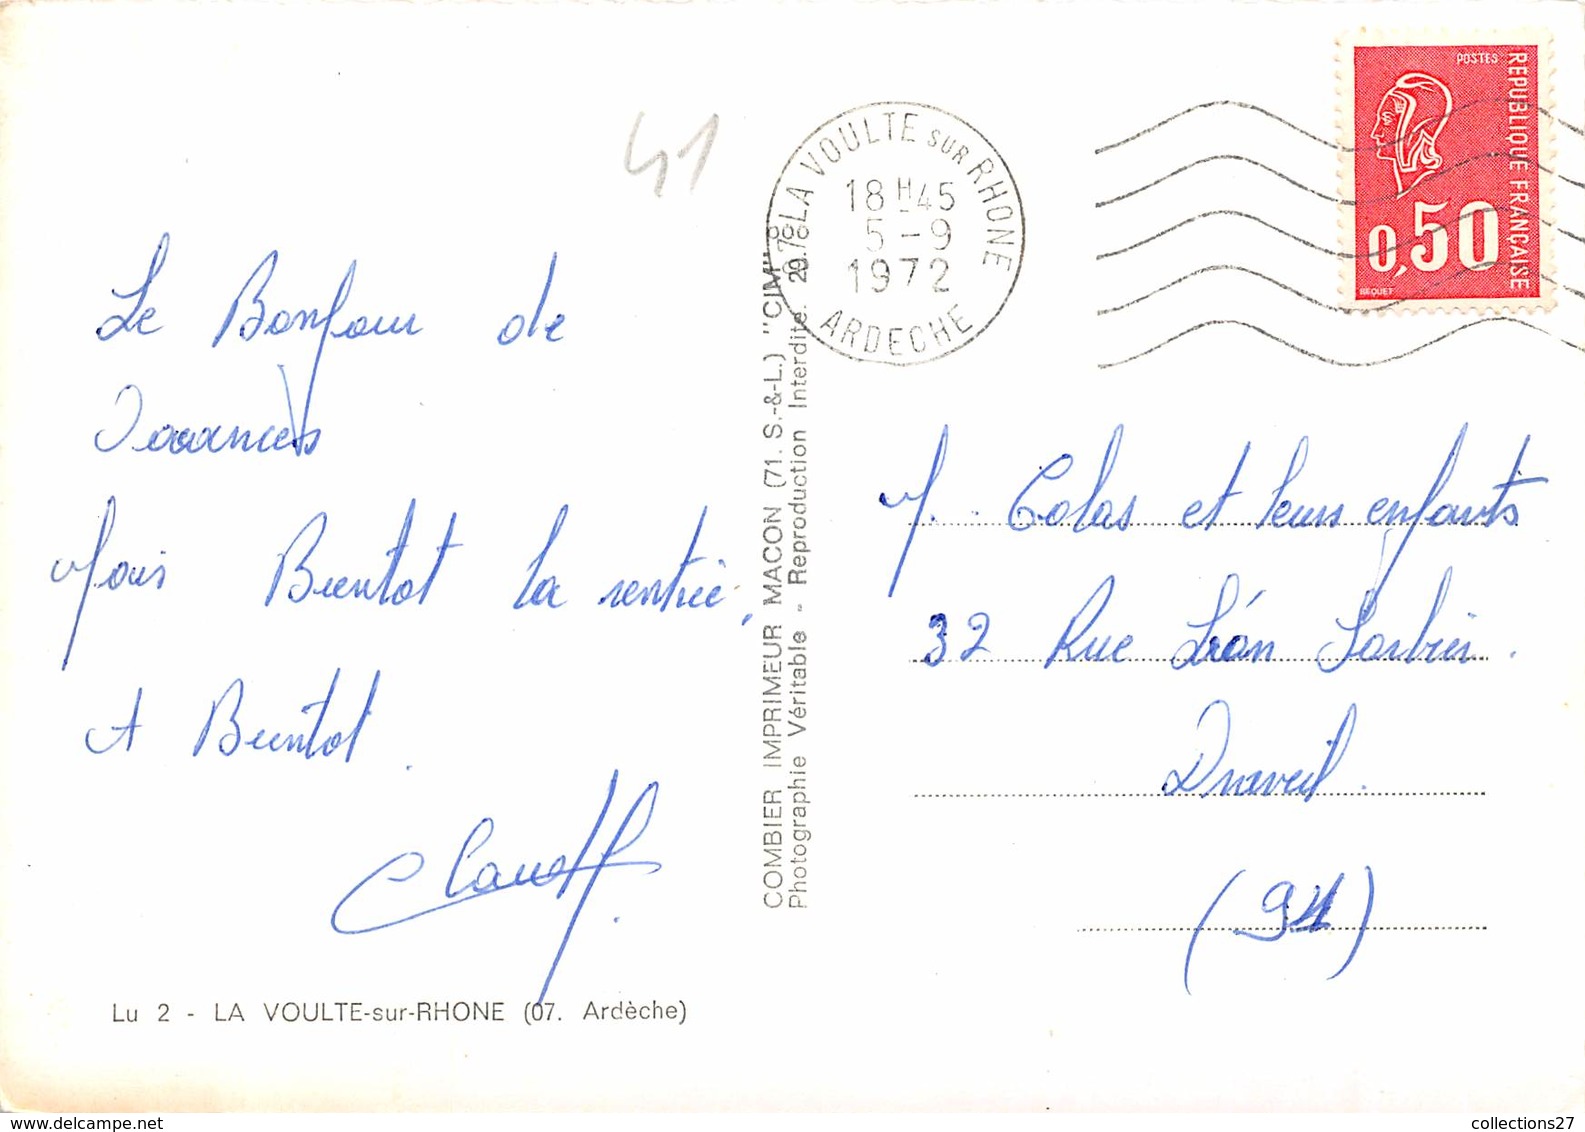 41
LA VOULTE SUR RHONE
18H45
5-9
1972
ARDECHE
POSTES
REPUBLIQUE FRANÇAISE
0,50
BEQUET
Le Bonjour de
Vacances
Mais Bientot la rentrée,
A Bientot.
COMBIER IMPRIMEUR MACON (71. S.-&-L.) "CIM"
Photographie Véritable - Reproduction Interdite.
M. Colas et leurs enfants
32 Rue Léon
Draveil.
(91)
Lu 2 - LA VOULTE-sur-RHONE (07. Ardèche)
www.delcampe.net
collections27